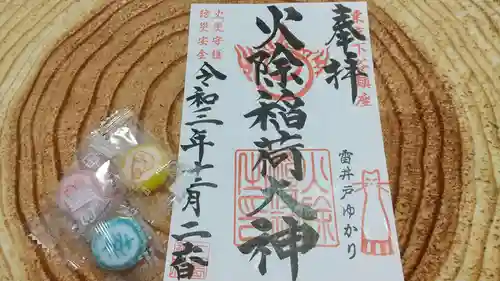 奉拝
東下谷鎮座
火除稲荷大神
雷井戸ゆかり
火災守護
防災安全
令和三年十二月二日